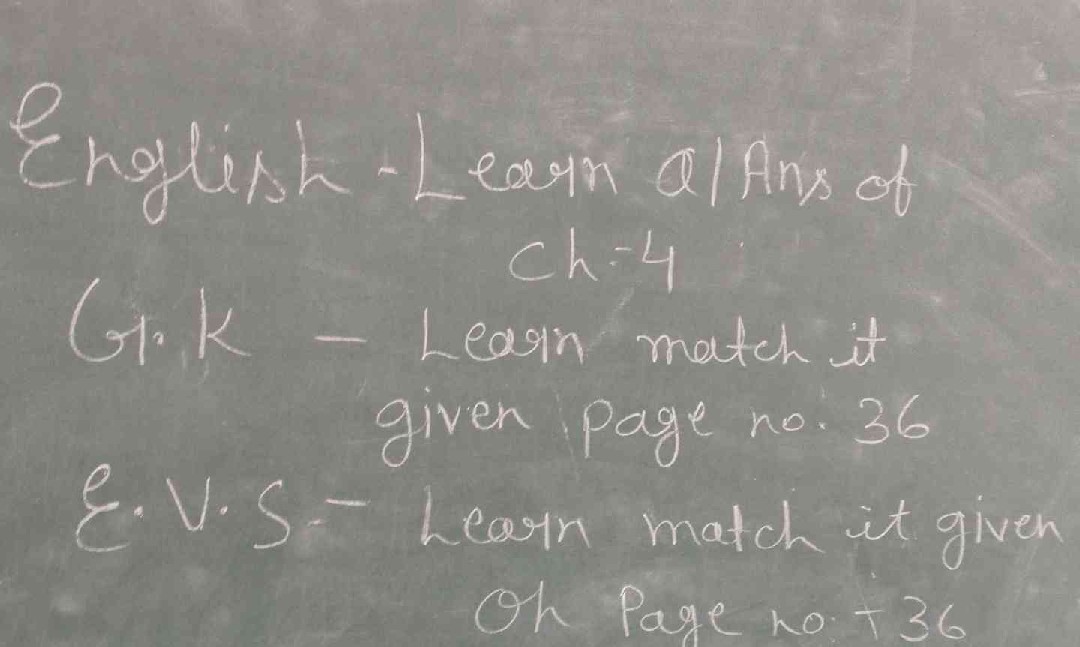 English - Learn Q/Ans of
Ch-4
G.K - Learn match it
given page no. 36
E.V.S.- Learn match it given
On Page no. - 36